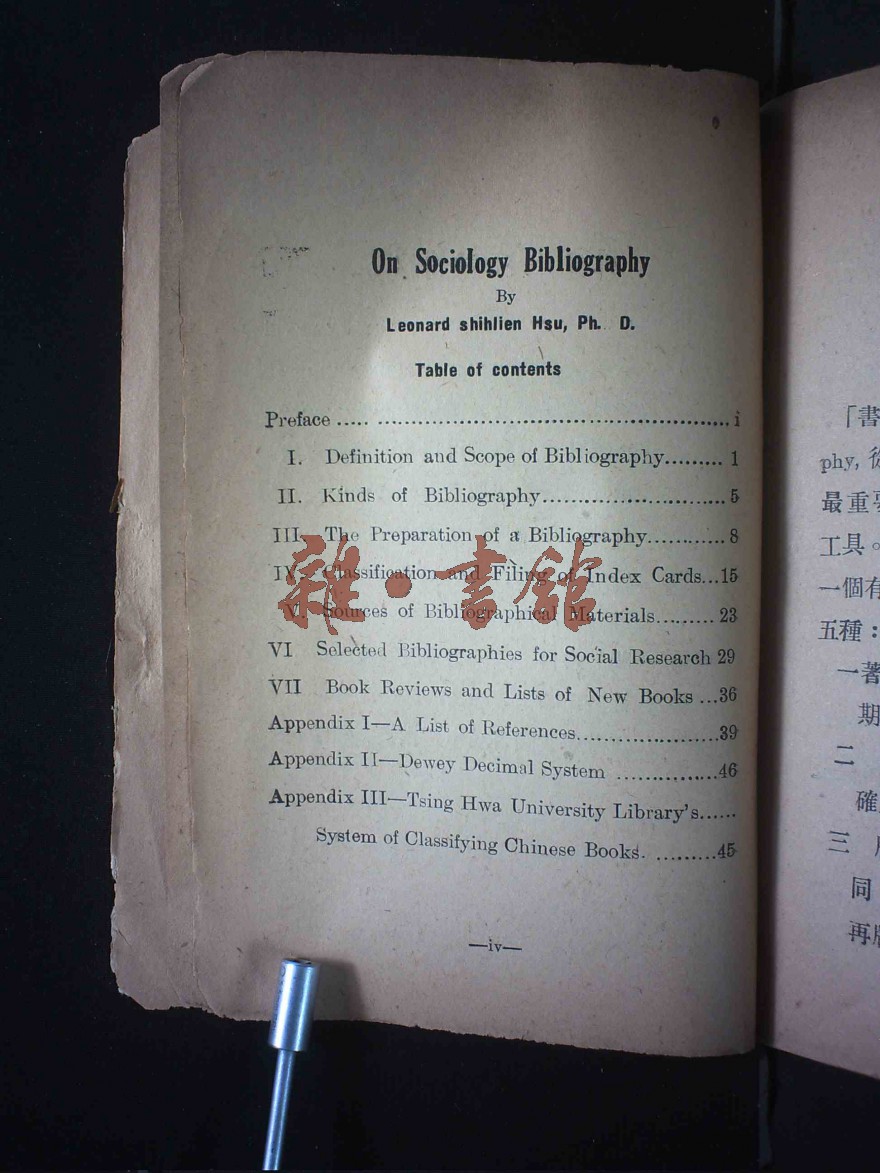 On Sociology Bibliography
By
Leonard shihlien Hsu, Ph. D.
Table of contents
Preface ..... ..................................................... i
I. Definition and Scope of Bibliography......... 1
II. Kinds of Bibliography............................ 5
III. The Preparation of a Bibliography............ 8
IV. Classification and Filing of Index Cards...15
V. Sources of Bibliographical Materials......... 23
VI Selected Bibliographies for Social Research 29
VII Book Reviews and Lists of New Books ...36
Appendix I—A List of References.....................39
Appendix II—Dewey Decimal System ...............46
Appendix III—Tsing Hwa University Library's......
System of Classifying Chinese Books. .........45
—iv—
雜·書館
「書
phy, 從
最重要
工具。
一個有
五種：
一著
期
二
確
三
同
再版